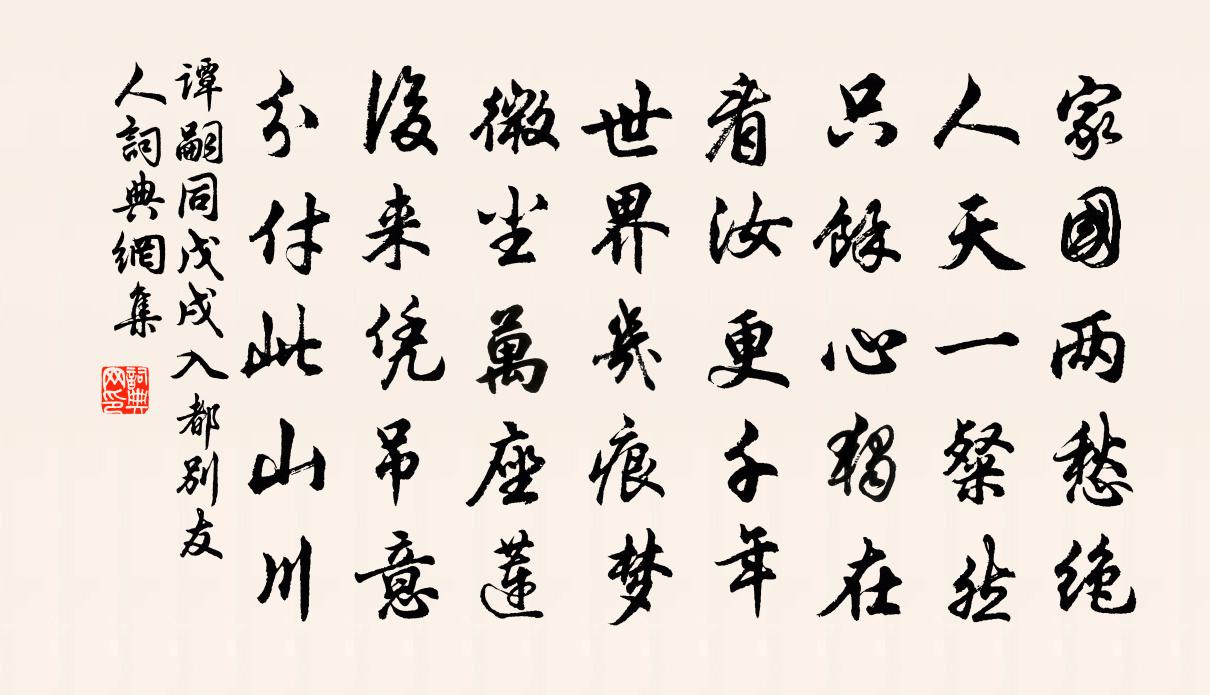 家國两愁绝
人天一粲然
只餘心獨在
看汝更千年
世界幾痕梦
微尘萬座蓮
後来凭吊意
分付此山川
谭嗣同戊戌入都别友
人詞典網集
詞典
网印